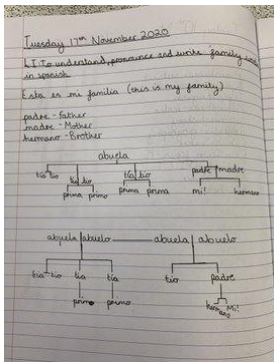 Tuesday 17th November 2020
LI To understand, pronounce and write family
in spanish
Esta es mi familia (this is my family)
padre - Father
madre - Mother
hermano - Brother
abuela
tía tío tía tío tía tío padre madre
prima primo prima prima mi! hermano
abuela abuelo abuela abuelo
tía tío tía tía tío padre
primo primo hermano Mi!